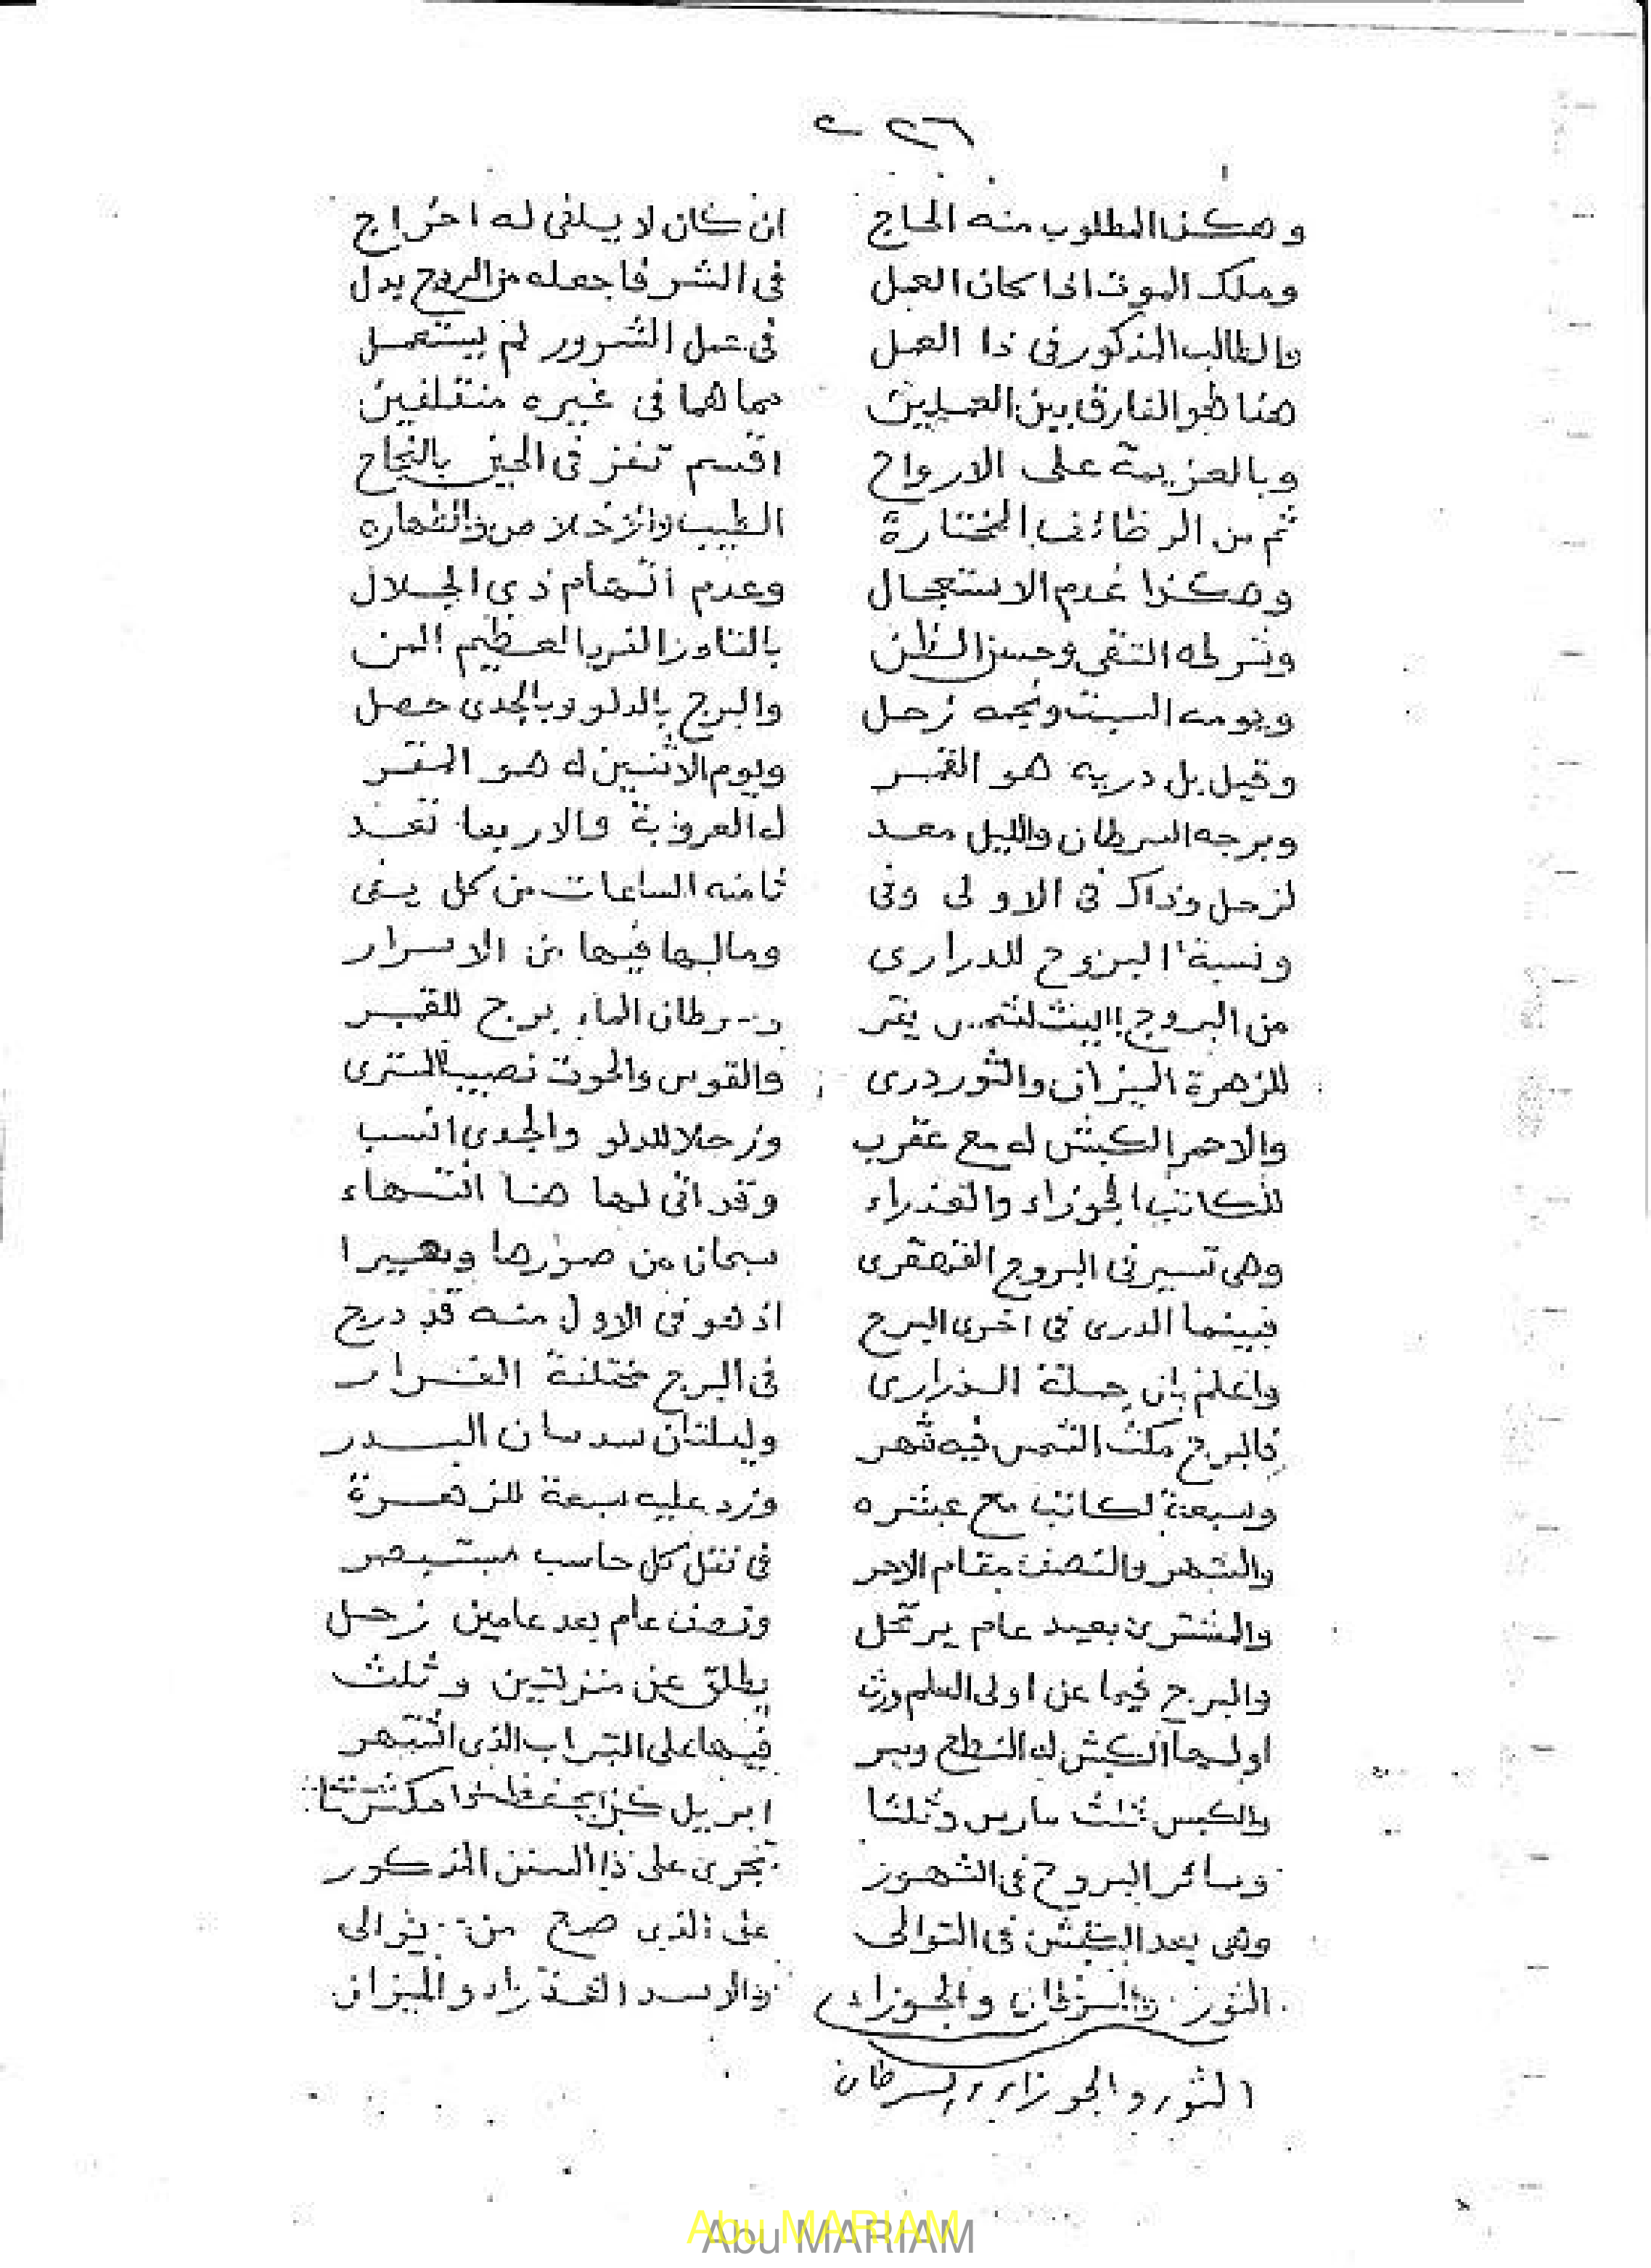 ٢٢٦
وهكذا المطلوب منه الحاج ان كان لا يلفى له اخراج
وملك الموت اذا كان العمل فى الشر فاجعله من الروح بدل
فالطالب المذكور فى ذا العمل فى عمل الشرور لم يستعمل
هنا هو الفارق بين العملين مما هما فى غيره متلفين
وبالعزيمة على الارواح اقسم تفز فى الحين بالنجاح
ثم من الوظائف المختارة الطيب والاخلاص والطهاره
وهكذا عدم الاستعجال وعدم اتهام ذى الجلال
وشرطه التقى وحسن الظن بالقادر الفرد العظيم المن
ويومه السبت ونجمه زحل والبرج بالدلو وبالجدى حصل
وقيل بل دريه هو القمر ويوم الاثنين له هو المقر
وبرجه السرطان والليل معد له العروبة والاربعا تعد
لزحل وذاك فى الاولى وفى ثامنه الساعات من كل يفى
ونسبة البروج للدرارى ومالها فيها من الاسرار
من البروج الليث لشمس يقر وسرطان الماء برج للقمر
للزهرة الميزان والثور درى والقوس والحوت نصيب المشترى
والاحمر الكبش له مع عقرب وزحلا للدلو والجدى انسب
للكاتب الجوزاء والعذراء وقد اتى لها هنا انتهاء
وهى تسير فى البروج القهقرى سبحان من صورها
فبينما الدرى فى اخرى البرج اذ هو فى الاول منه قد درج
واعلم بان جملة الدرارى فى البرج مختلفة القرار
فالبرج مكث الشمس فيه شهر وليلتان سدسان البدر
وسبعة لكاتب مع عشره وزد عليه سبعة للزهرة
والشهر والنصف مقام الاحمر فى نقل كل حاسب مستبصر
والمشترى بعيد عام يرتحل ونصف عام بعد عامين زحل
والبرج فيما عن اولى العلم ورث يطلق عن منزلتين وثلث
اولها الكبش له النطح وسر فيها على التراب الذى اشتهر
والكبس ثلث مارس وثلثا ابريل
وسائر البروج فى الشهور تجرى على ذا السنن المذكور
وهى بعد الكبش فى التوالى على الذى صح من
الثور والسرطان والجوزاء والاسد العذراء والميزان
الثور والجوزاء والسرطان
Abu MARIAM